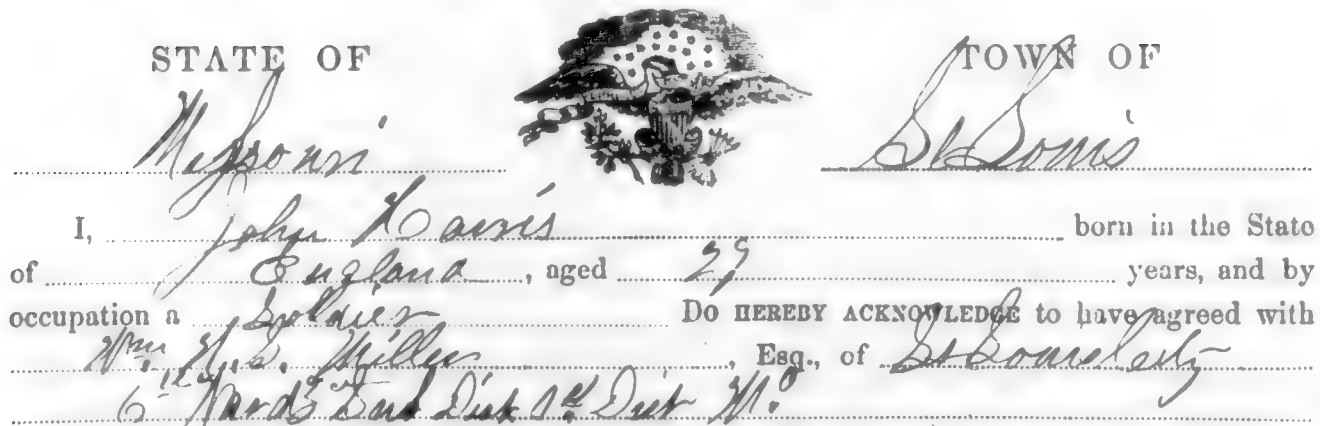 STATE OF TOWN OF
Missouri St Louis
I, John Harris born in the State
of England, aged 29 years, and by
occupation a Soldier Do HEREBY ACKNOWLEDGE to have agreed with
Wm. H. S. Miller, Esq., of St Louis City
6th Ward Dist 1st Dist Mo